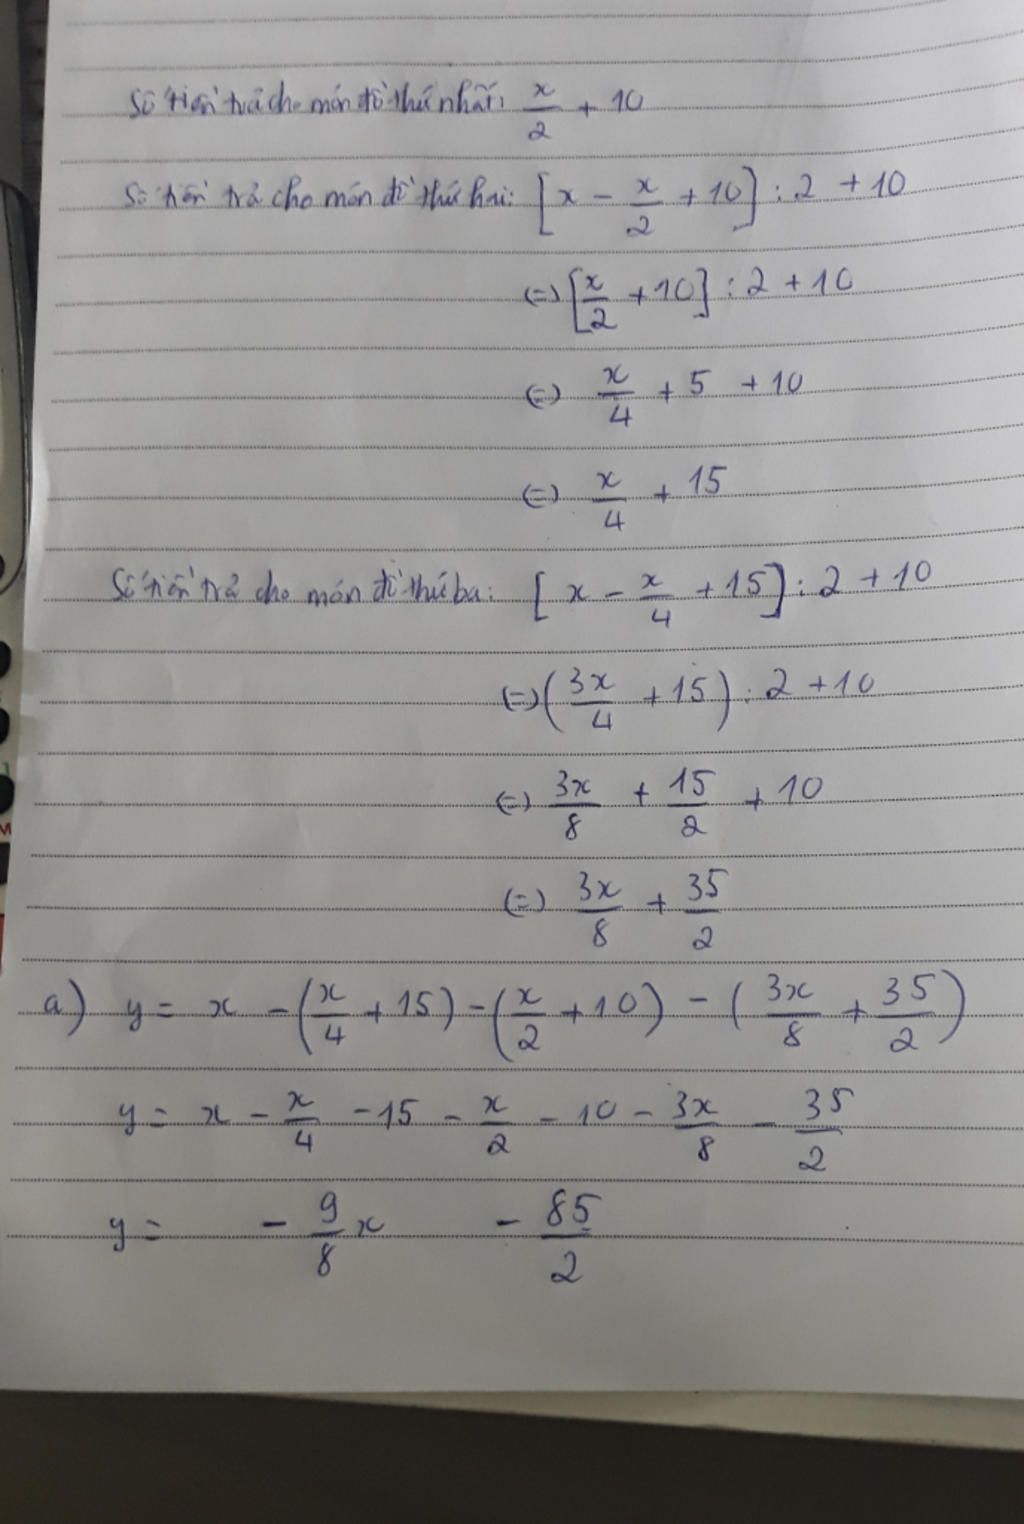 Số tiền trả cho món đồ thứ nhất: x/2 + 10
Số tiền trả cho món đồ thứ hai: [x - x/2 + 10] : 2 + 10
(=) [x/2 + 10] : 2 + 10
(=) x/4 + 5 + 10
(=) x/4 + 15
Số tiền trả cho món đồ thứ ba: [x - x/4 + 15] : 2 + 10
(=) (3x/4 + 15) : 2 + 10
(=) 3x/8 + 15/2 + 10
(=) 3x/8 + 35/2
a) y = x - (x/4 + 15) - (x/2 + 10) - (3x/8 + 35/2)
y = x - x/4 - 15 - x/2 - 10 - 3x/8 - 35/2
y = - 9/8 x - 85/2